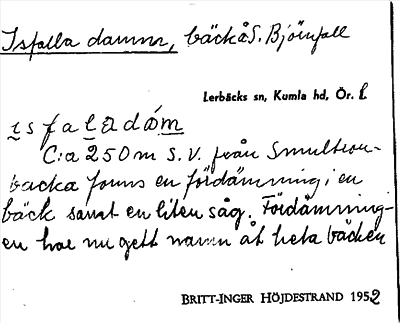 Isfalla damm, bäck å S. Björnfall
Lerbäcks sn, Kumla hd, Ör. l.
ɩsfaladám
C:a 250 m S.V. från Smultron-
backa fanns en fördämning i en
bäck samt en liten såg. Fördämning-
en har nu gett namn åt hela bäcken
BRITT-INGER HÖJDESTRAND 1952